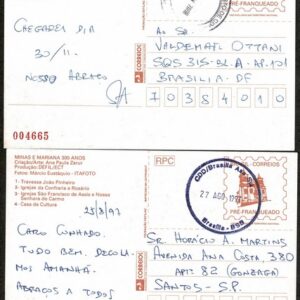 PRÉ-FRANQUEADO
CORREIOS
CHEGAREI DIA
30/11.
NOSSO ABRAÇO
AO SR.
VALDEMAR OTTANI
SQS 315-BL A-AP. 101
BRASÍLIA - DF
70384010
004665
MINAS E MARIANA 300 ANOS
Criação/Arte: Ana Paula Zervi
Produção: DEFIL/ECT
Fotos: Márcio Eustáquio - ITAFOTO
1 - Travessa João Pinheiro
2 - Igrejas da Confraria e Rosário
3 - Igrejas São Francisco de Assis e Nossa
Senhora do Carmo
4 - Casa de Cultura
RPC
PRÉ-FRANQUEADO
CORREIOS
CDD/Brasília
27 AGO
Brasília
25/8/97
CARO CUNHADO.
TUDO BEM. DECOLA
MOS AMANHÃ.
ABRAÇOS A TODOS
SR. HORÁCIO A. MARTINS
AVENIDA ANA COSTA, 380
APT: 82 (GONZAGA)
SANTOS - SP.